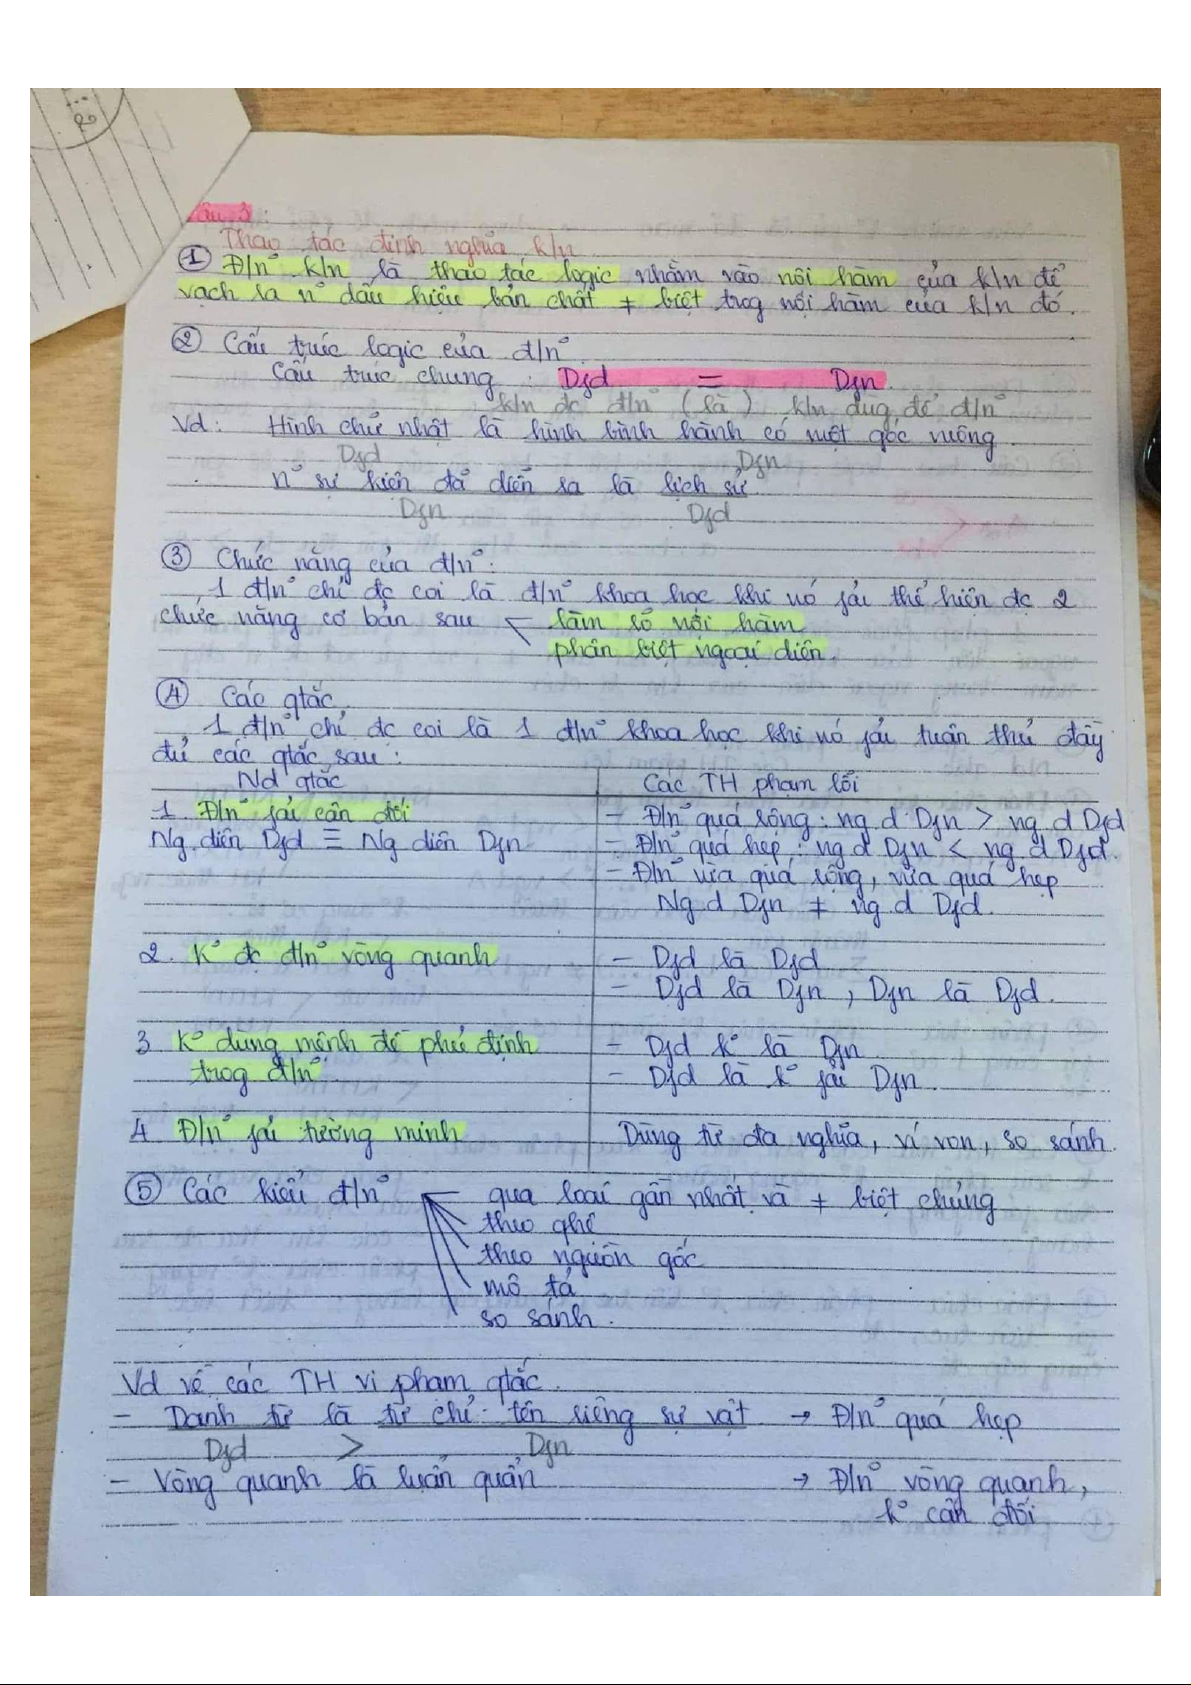 Câu 3:
Thao tác định nghĩa k/n
① Đ/n° k/n là thao tác logic nhằm vào nội hàm của k/n để
vạch ra n° dấu hiệu bản chất + biệt trog nội hàm của k/n đó.
② Cấu trúc logic của đ/n°.
Cấu trúc chung: Dfd = Dfn.
k/n đc đ/n° (là) k/n dùg để đ/n°
Vd: Hình chữ nhật là hình bình hành có một góc vuông.
Dfd Dfn
n° sự kiện đã diễn ra là lịch sử
Dfn Dfd
③ Chức năng của đ/n°:
1 đ/n° chỉ đc coi là đ/n° khoa học khi nó fải thể hiện đc 2
chức năng cơ bản sau làm rõ nội hàm
phân biệt ngoại diên.
④ Các qtắc.
1 đ/n° chỉ đc coi là 1 đ/n° khoa học khi nó fải tuân thủ đầy
đủ các qtắc sau:
Nd qtắc Các TH phạm lỗi
1. Đ/n° fải cân đối - Đ/n° quá rộng: ng d Dfn > ng d Dfd
Ng diên Dfd ≡ Ng diên Dfn - Đ/n° quá hẹp: ng d Dfn < ng d Dfd.
- Đ/n° vừa quá rộng, vừa quá hẹp
Ng d Dfn ≠ ng d Dfd.
2. K° đc đ/n° vòng quanh - Dfd là Dfd
- Dfd là Dfn, Dfn là Dfd.
3 K° dùng mệnh đề phủ định - Dfd k° là Dfn
trog đ/n° - Dfd là k° fải Dfn.
4. Đ/n° fải tường minh Dùng từ đa nghĩa, ví von, so sánh.
⑤ Các kiểu đ/n° qua loại gần nhất và + biệt chủng
theo qhệ
theo nguồn gốc
mô tả
so sánh.
Vd về các TH vi phạm qtắc.
- Danh từ là từ chỉ tên riêng sự vật → Đ/n° quá hẹp
Dfd > Dfn
- Vòng quanh là luẩn quẩn → Đ/n° vòng quanh,
k° cân đối